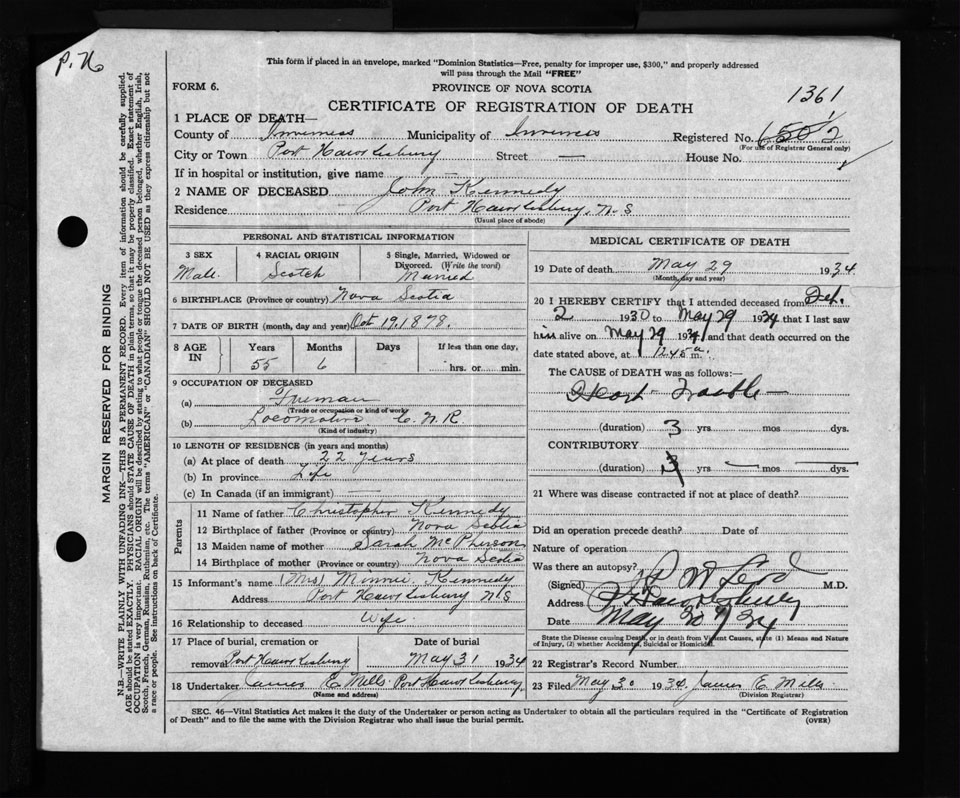 P. N
This form if placed in an envelope, marked "Dominion Statistics—Free, penalty for improper use, $300," and properly addressed
will pass through the Mail "FREE"
FORM 6.
PROVINCE OF NOVA SCOTIA
1361
CERTIFICATE OF REGISTRATION OF DEATH
1 PLACE OF DEATH—
County of Inverness Municipality of Inverness Registered No. 6502
(For use of Registrar General only)
City or Town Port Hawkesbury Street — House No.
If in hospital or institution, give name
2 NAME OF DECEASED John Kennedy
Residence Port Hawkesbury, N.S
(Usual place of abode)
PERSONAL AND STATISTICAL INFORMATION
3 SEX 4 RACIAL ORIGIN 5 Single, Married, Widowed or
Divorced. (Write the word)
Male. Scotch Married
6 BIRTHPLACE (Province or country) Nova Scotia
7 DATE OF BIRTH (month, day and year) Oct 19, 1878.
8 AGE IN Years Months Days If less than one day,
55 6 hrs. or min.
9 OCCUPATION OF DECEASED
(a) Fireman
(Trade or occupation or kind of work)
(b) Locomotive C. N. R.
(Kind of industry)
10 LENGTH OF RESIDENCE (in years and months)
(a) At place of death 22 years
(b) In province Life
(c) In Canada (if an immigrant) —
Parents
11 Name of father Christopher Kennedy
12 Birthplace of father (Province or country) Nova Scotia
13 Maiden name of mother Sarah McPherson
14 Birthplace of mother (Province or country) Nova Scotia
15 Informant's name (Mrs) Minnie Kennedy
Address Port Hawkesbury N.S
16 Relationship to deceased Wife.
17 Place of burial, cremation or Date of burial
removal Port Hawkesbury May 31 1934
18 Undertaker James E. Mills Port Hawkesbury
(Name and address)
MEDICAL CERTIFICATE OF DEATH
19 Date of death May 29 1934.
(Month, day and year)
20 I HEREBY CERTIFY that I attended deceased from
2 1930 to May 29 1934 that I last saw
him alive on May 29 1934 and that death occurred on the
date stated above, at 12.45 a m.
The CAUSE of DEATH was as follows:—
Heart Trouble
(duration) 3 yrs mos dys.
CONTRIBUTORY
(duration) 3 yrs — mos — dys.
21 Where was disease contracted if not at place of death?
Did an operation precede death? Date of
Nature of operation
Was there an autopsy?
(Signed) M.D.
Address P. Hawkesbury
Date May 30/34
State the Disease causing Death, or in death from Violent Causes, state (1) Means and Nature
of Injury, (2) whether Accidental, Suicidal or Homicidal.
22 Registrar's Record Number
23 Filed May 30 1934. James E. Mills
(Division Registrar)
SEC. 46—Vital Statistics Act makes it the duty of the Undertaker or person acting as Undertaker to obtain all the particulars required in the "Certificate of Registration
of Death" and to file the same with the Division Registrar who shall issue the burial permit. (OVER)
MARGIN RESERVED FOR BINDING
N.B.—WRITE PLAINLY WITH UNFADING INK—THIS IS A PERMANENT RECORD. Every item of information should be carefully supplied.
AGE should be stated EXACTLY. PHYSICIANS should STATE CAUSE OF DEATH in plain terms, so that it may be properly classified. Exact statement of
OCCUPATION is very important. RACIAL ORIGIN will be described by stating to what people or tongue the deceased person belonged, whether English, Irish,
Scotch, French, German, Russian, Ruthenian, etc. The terms "AMERICAN" or "CANADIAN" SHOULD NOT BE USED as they express citizenship but not
a race or people. See instructions on back of Certificate.